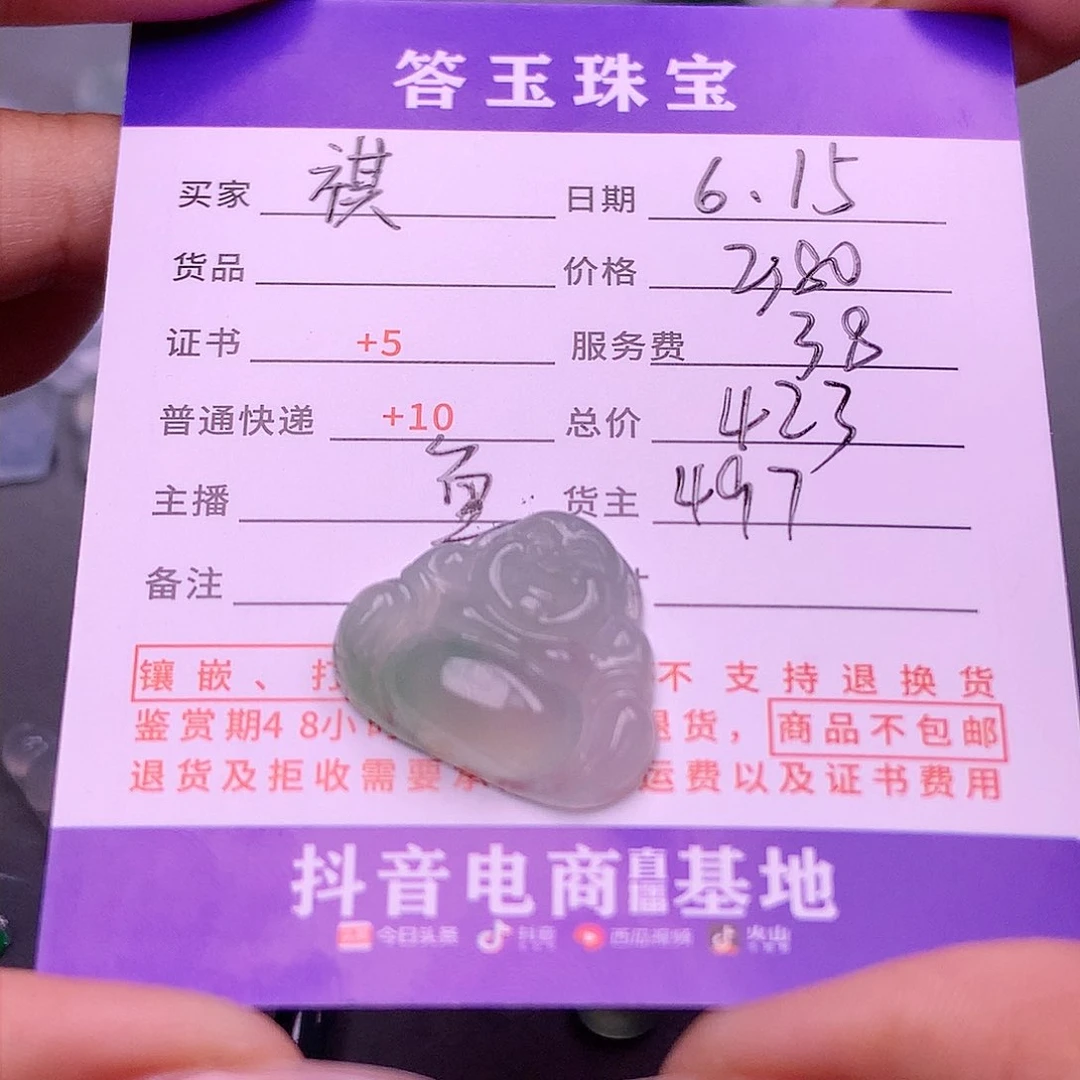 答玉珠宝
买家 祺 日期 6.15
货品 价格
证书 +5 服务费 38
普通快递 +10 总价 423
主播 鱼 货主 497
备注
镶嵌、打 不支持退换货
鉴赏期48小 退货，商品不包邮
退货及拒收需要承 运费以及证书费用
抖音电商直播基地
今日头条 抖音 西瓜视频 火山